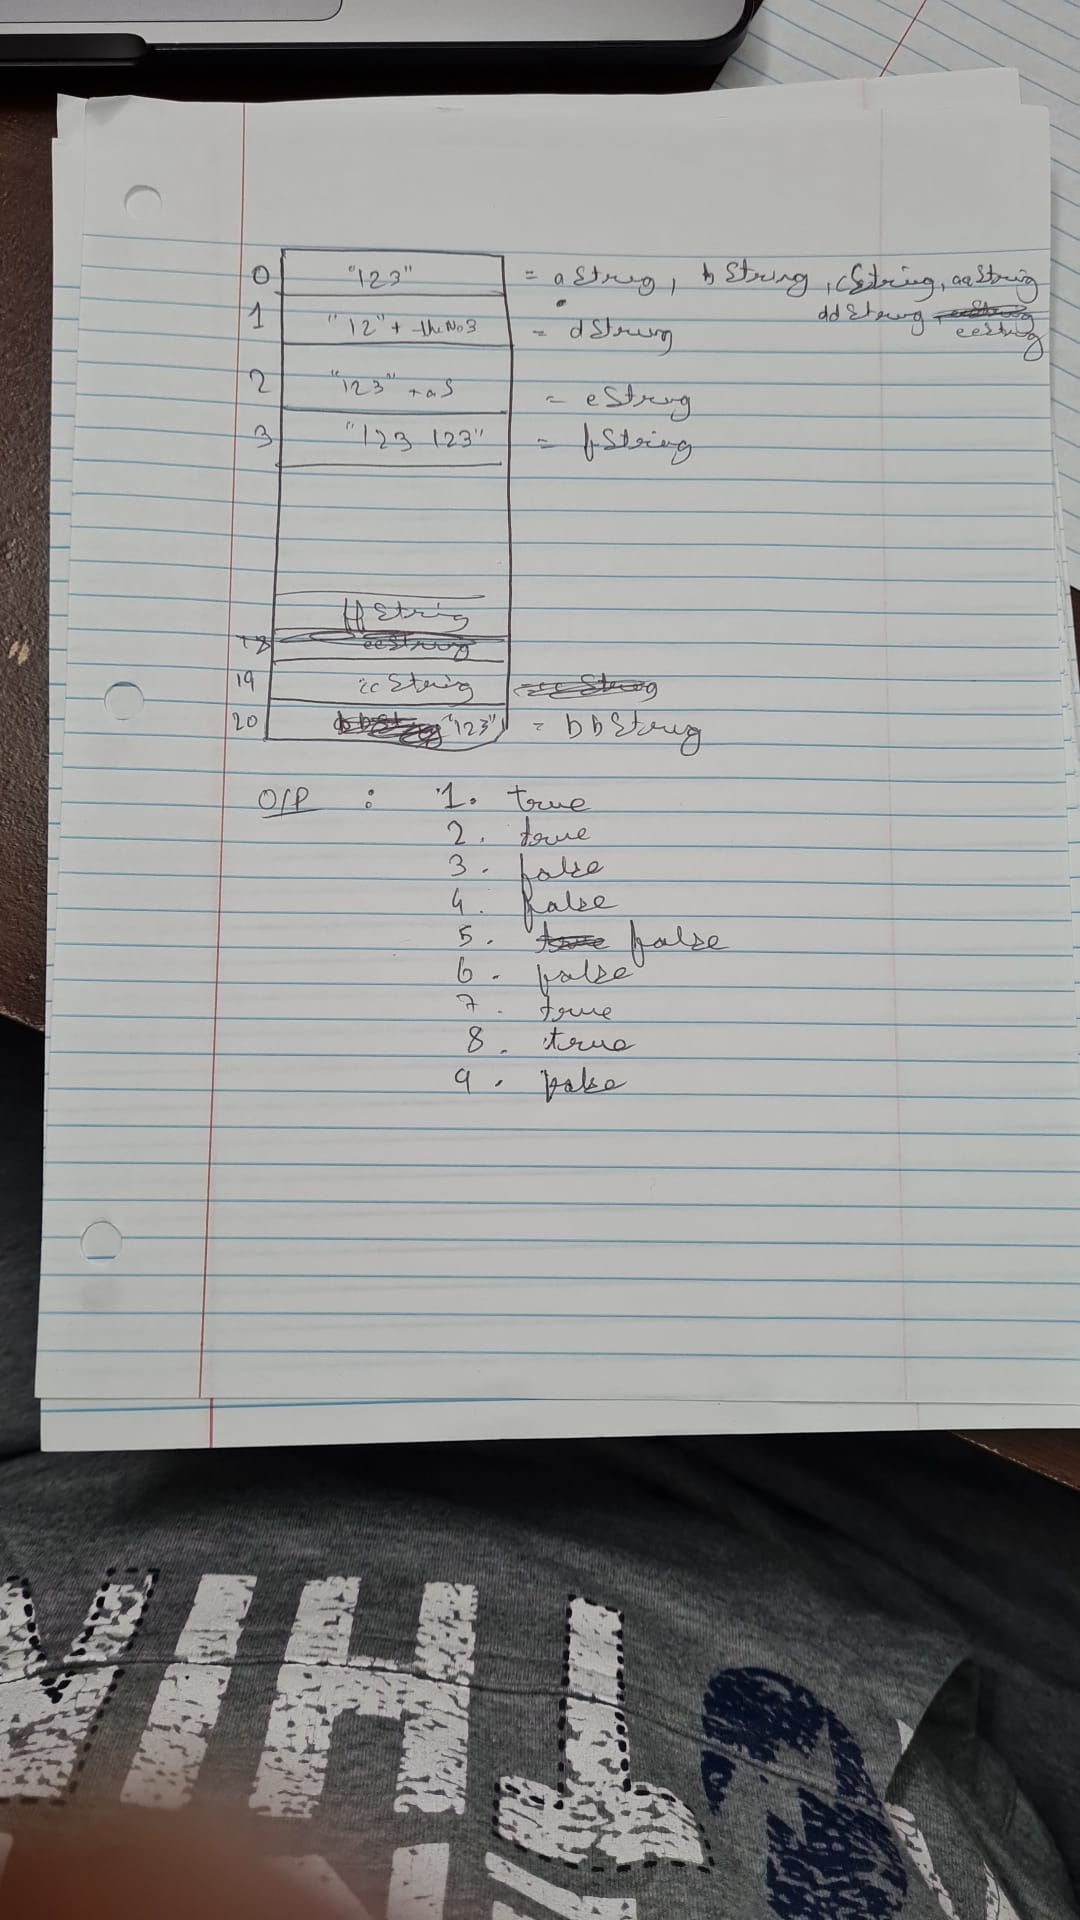 0 "123" = aString, bString, cString, aaString
ddString eeString
1 "12" + theNo3 = dString
2 "123" + aS = eString
3 "123 123" = fString
ffString
18 eeString
19 ccString ccString
20 "123" = bbString
O/P : 1. true
2. true
3. false
4. false
5. true false
6. false
7. true
8. true
9. false